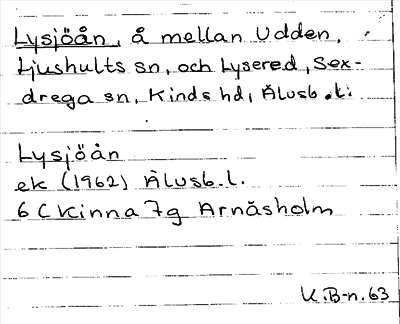 Lysjöån, å mellan Udden,
Ljushults sn, och Lysered, Sex-
drega sn, Kinds hd, Älvsb.l.
Lysjöån
ek (1962) Älvsb.l.
6 C Kinna 7g Arnäsholm
U.B-n.63